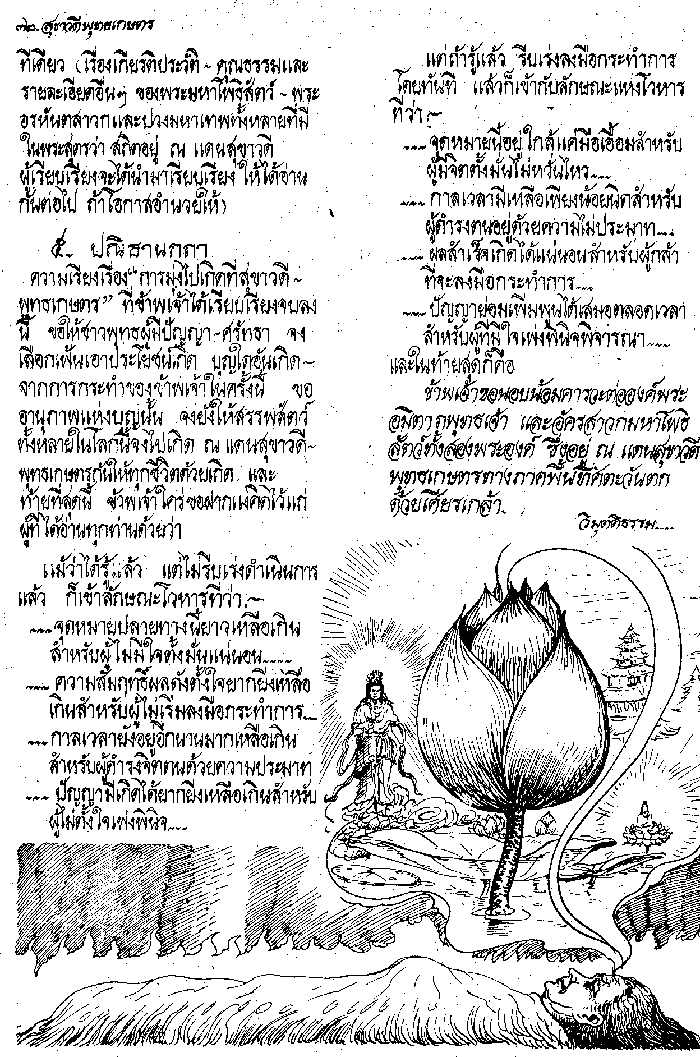 ๓๒. สุขาวดีพุทธเกษตร
ทีเดียว (เรื่องเกียรติประวัติ ~ คุณธรรมและ
รายละเอียดอื่นๆ ของพระมหาโพธิสัตว์ ~ พระ
อรหันตสาวกและปวงมหาเทพทั้งหลายที่มี
ในพระสูตรว่า สถิตอยู่ ณ แดนสุขาวดี
ผู้เรียบเรียงจะได้นำมาเรียบเรียง ให้ได้อ่าน
กันต่อไป ถ้าโอกาสอำนวยให้)
๕. ปณิธานกถา
ความเรียงเรื่อง "การมุ่งไปเกิดที่สุขาวดี ~
พุทธเกษตร" ที่ข้าพเจ้าได้เรียบเรียงจบลง
นี้ ขอให้ชาวพุทธผู้มีปัญญา ~ ศรัทธา จง
เลือกเฟ้นเอาประโยชน์เถิด บุญใดอันเกิด ~
จากการกระทำของข้าพเจ้าในครั้งนี้ ขอ
อานุภาพแห่งบุญนั้น จงยังให้สรรพสัตว์
ทั้งหลายในโลกนี้จงไปเกิด ณ แดนสุขาวดี ~
พุทธเกษตรกันให้ทุกชีวิตด้วยเถิด และ
ท้ายที่สุดนี้ ข้าพเจ้าใคร่ขอฝากแง่คิดไว้แก่
ผู้ที่ได้อ่านทุกท่านด้วยว่า
แม้ว่าได้รู้แล้ว แต่ไม่รีบเร่งดำเนินการ
แล้ว ก็เข้าลักษณะโวหารที่ว่า: ~
.... จุดหมายปลายทางนี้ยาวเหลือเกิน
สำหรับผู้ไม่มีใจตั้งมั่นแน่นอน....
.... ความสัมฤทธิ์ผลดังตั้งใจยากยิ่งเหลือ
เกินสำหรับผู้ไม่เริ่มลงมือกระทำการ...
.... กาลเวลายังอยู่อีกนานมากเหลือเกิน
สำหรับผู้ดำรงจิตตนด้วยความประมาท
.... ปัญญามีเกิดได้ยากยิ่งเหลือเกินสำหรับ
ผู้ไม่ตั้งใจเพ่งพินิจ....
แต่ถ้ารู้แล้ว รีบเร่งลงมือกระทำการ
โดยทันที แล้วก็เข้ากับลักษณะแห่งโวหาร
ที่ว่า: ~
.... จุดหมายนี้อยู่ใกล้แค่มือเอื้อมสำหรับ
ผู้มีจิตตั้งมั่นไม่หวั่นไหว....
.... กาลเวลามีเหลือเพียงน้อยนิดสำหรับ
ผู้ดำรงตนอยู่ด้วยความไม่ประมาท....
.... ผลสำเร็จเกิดได้แน่นอนสำหรับผู้กล้า
ที่จะลงมือกระทำการ....
.... ปัญญาย่อมเพิ่มพูนได้เสมอตลอดเวลา
สำหรับผู้ที่มีใจเพ่งพินิจพิจารณา....
และในท้ายสุดก็คือ
ข้าพเจ้าขอนอบน้อมคารวะต่อองค์พระ
อมิตาภพุทธเจ้า และอัครสาวกมหาโพธิ
สัตว์ทั้งสองพระองค์ ซึ่งอยู่ ณ แดนสุขาวดี
พุทธเกษตรทางภาคพื้นทิศตะวันตก
ด้วยเศียรเกล้า.
วิมุตติธรรม....